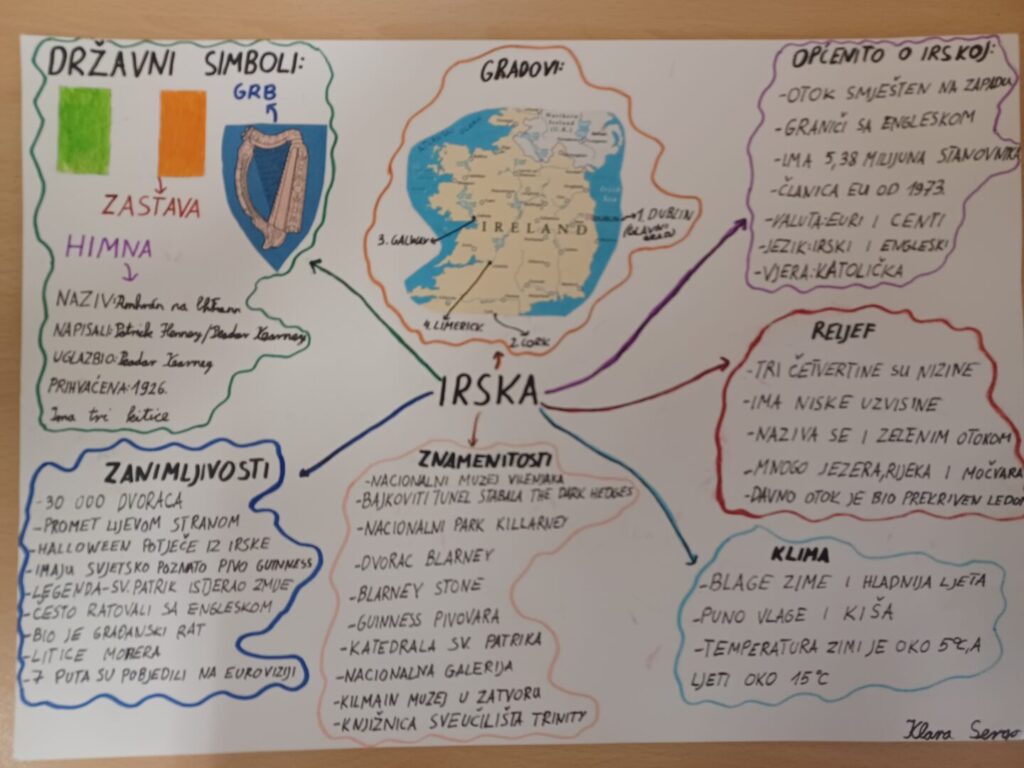 DRŽAVNI SIMBOLI:
GRB
ZASTAVA
HIMNA
NAZIV:
NAPISALI: Patrick Heeney/Peadar Kearney
UGLAZBIO: Peadar Kearney
PRIHVAĆENA: 1926.
Ima tri kitice
GRADOVI:
Northern
Ireland
(U.K.)
IRELAND
Irish
Sea
1. DUBLIN
(GLAVNI
GRAD)
3. GALWAY
4. LIMERICK
2. CORK
OPĆENITO O IRSKOJ:
-OTOK SMJEŠTEN NA ZAPADU
-GRANIČI SA ENGLESKOM
-IMA 5,38 MILIJUNA STANOVNIKA
-ČLANICA EU OD 1973.
-VALUTA: EURI I CENTI
-JEZIK: IRSKI I ENGLESKI
-VJERA: KATOLIČKA
IRSKA
RELJEF
-TRI ČETVERTINE SU NIZINE
-IMA NISKE UZVISINE
-NAZIVA SE I ZELENIM OTOKOM
-MNOGO JEZERA, RIJEKA I MOČVARA
-DAVNO OTOK JE BIO PREKRIVEN LEDOM
ZANIMLJIVOSTI
-30 000 DVORACA
-PROMET LIJEVOM STRANOM
-HALLOWEEN POTJEČE IZ IRSKE
-IMAJU SVJETSKO POZNATO PIVO GUINNESS
-LEGENDA-SV. PATRIK ISTJERAO ZMIJE
-ČESTO RATOVALI SA ENGLESKOM
-BIO JE GRAĐANSKI RAT
-LITICE MOHERA
-7 PUTA SU POBJEDILI NA EUROVIZIJI
ZNAMENITOSTI
-NACIONALNI MUZEJ VILENJAKA
-BAJKOVITI TUNEL STABALA THE DARK HEDGES
-NACIONALNI PARK KILLARNEY
-DVORAC BLARNEY
-BLARNEY STONE
-GUINNESS PIVOVARA
-KATEDRALA SV. PATRIKA
-NACIONALNA GALERIJA
-KILMAIN MUZEJ U ZATVORU
-KNJIŽNICA SVEUČILIŠTA TRINITY
KLIMA
-BLAGE ZIME I HLADNIJA LJETA
-PUNO VLAGE I KIŠA
-TEMPERATURA ZIMI JE OKO 5°C, A
LJETI OKO 15°C
Klara Sergo